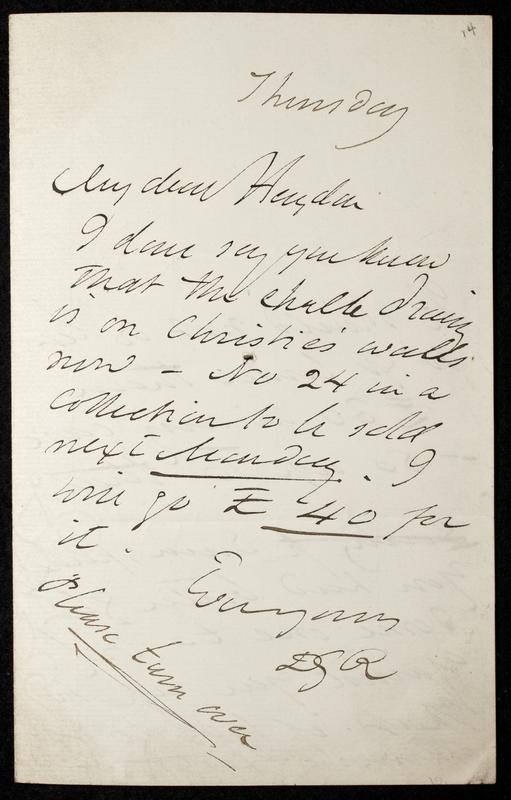 14
Thursday
My dear Haydon
I dare say you know
that the chalk drawing
is on Christie's walls
now – No 24 in a
collection to be sold
next Monday. I
will go £40 for
it.
Ever yours
DGR
Please turn over